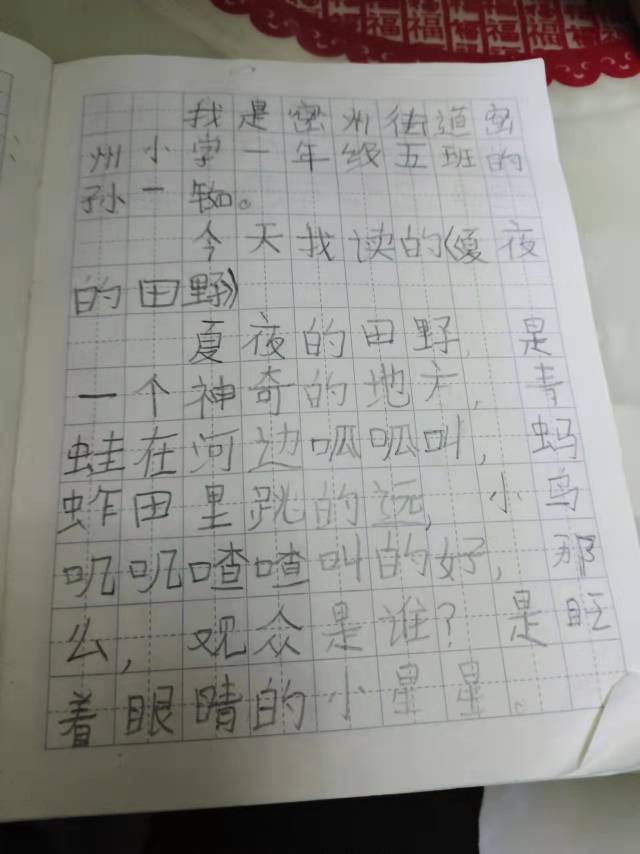 福福福福福
我是密州街道密
州小字一年级五班的
孙一铷。
今天找读的《夏夜
的田野》
夏夜的田野,是
一个神奇的地方,青
蛙在河边呱呱叫,蚂
蚱田里跳的远,小鸟
叽叽喳喳叫的好,那
么,观众是谁?是眨
着眼睛的小星星。